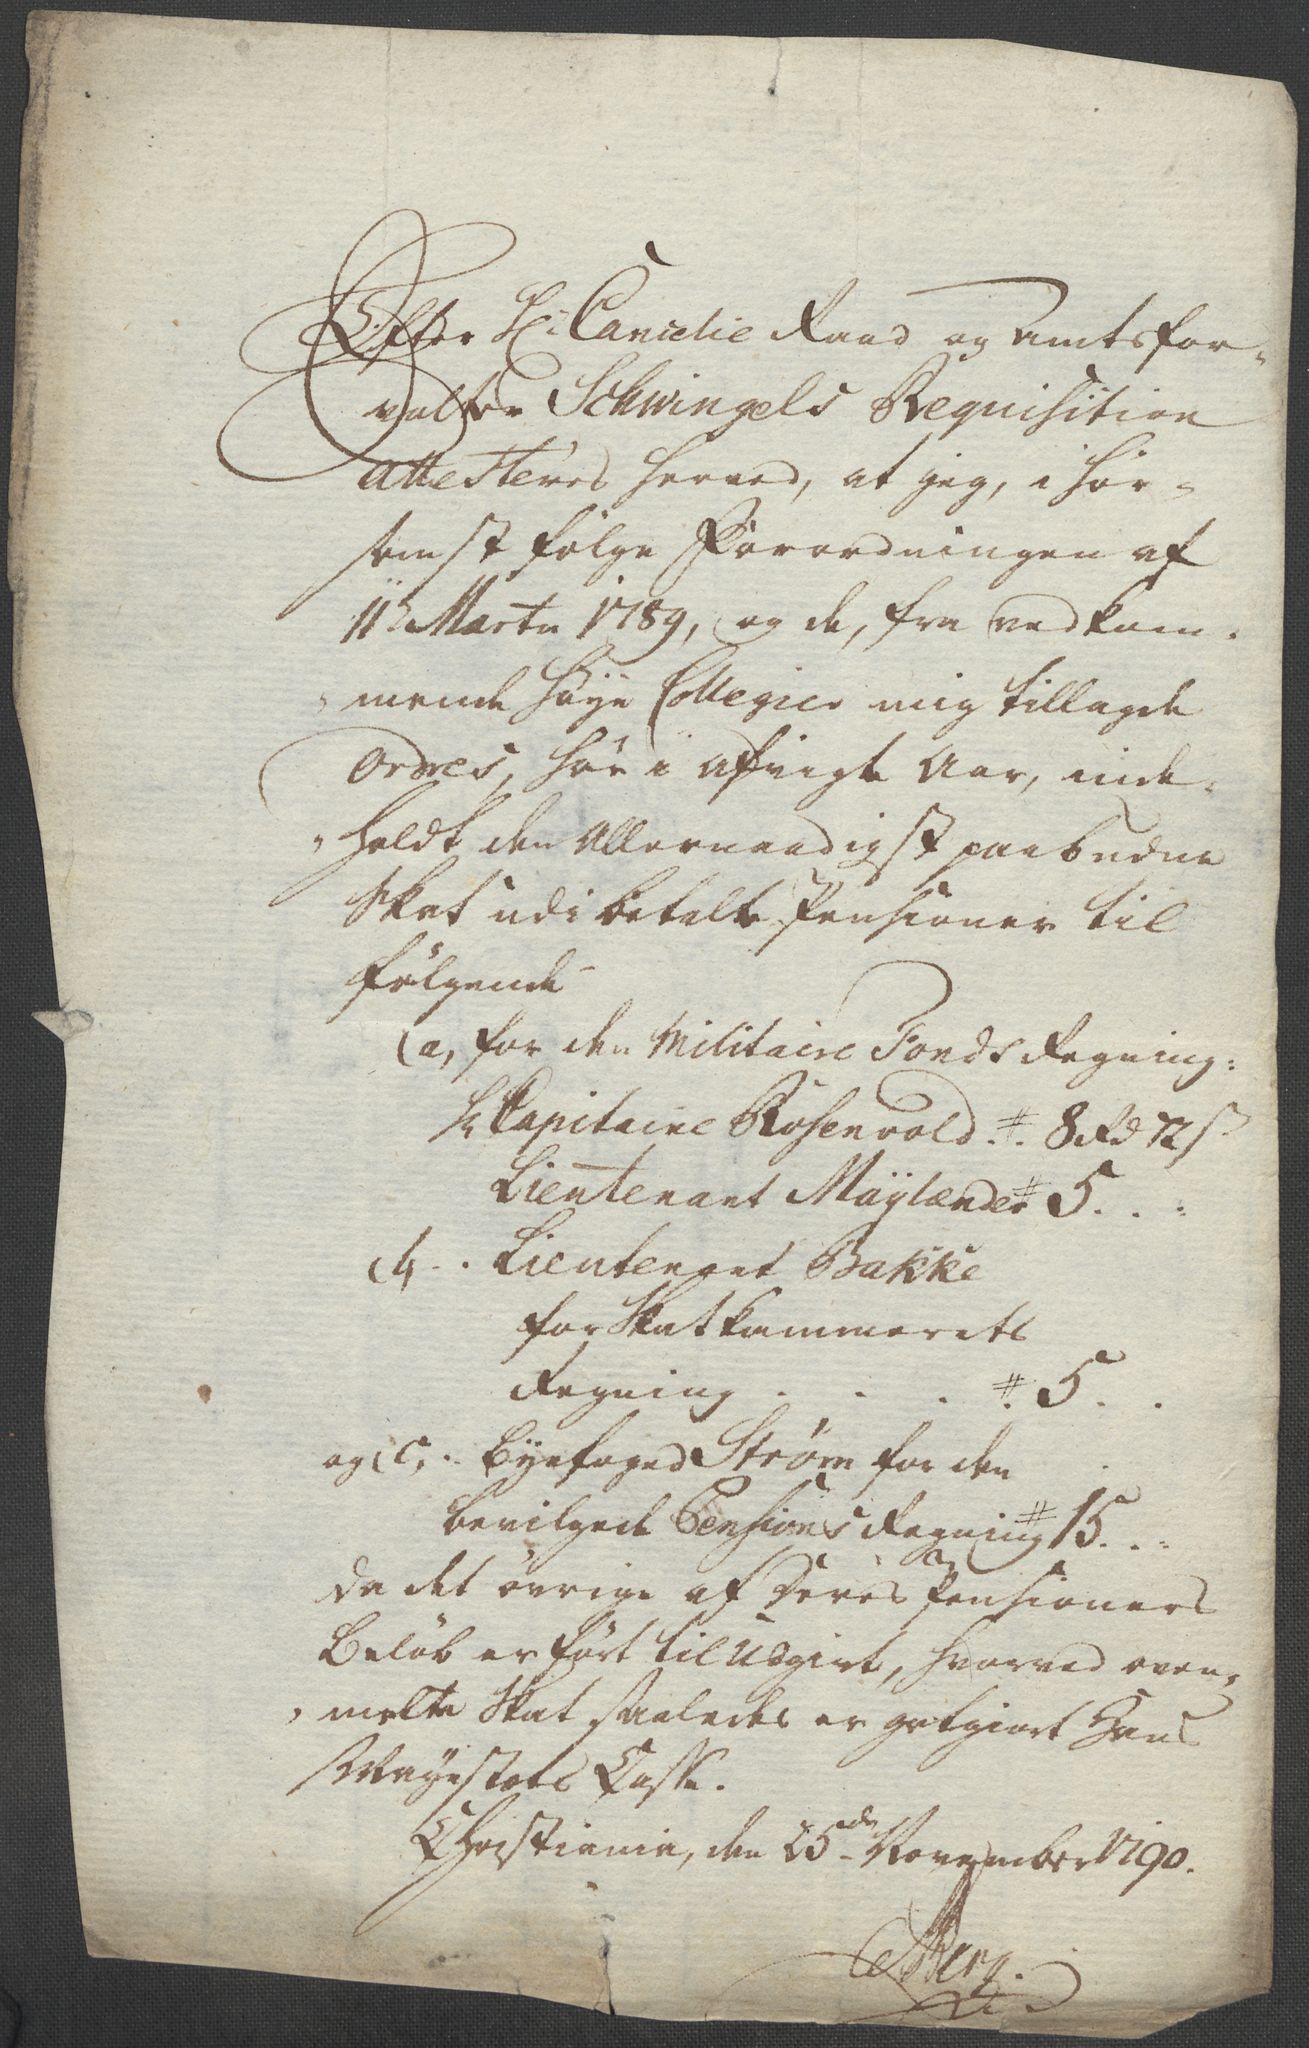 Efter Hr: Cancelie Raad og Amtsfor-
valter Schwingels Requisition
Attesteres herved, at jeg, i hør-
somst følge Forordningen af
11te Martii 1789, og de, fra vedkom-
mende høye Collegier mig tillagde
Ordres, har i afvigte Aar, inde-
holdt den Allernaadigst paabudne
Skat udi betalte Pensioner til
følgende
(a, for den Militaire Fonds Regning:
Hr Capitaine Rosenvold # 8 Rd 72 s
Lieutenant Møÿlænder # 5. . .
(b . Lieutenant Bakke
for Skatkammerets
Regning . . . # 5. .
og (C, . Byefoged Strøm for den
bevilgede Pensions Regning # 15. . .
da det øvrige af deres Pensioners
Beløb er ført til Udgivt, hvorved oven-
melte Skat saaledes er godgiort Hans
Mayestæts Casse.
Christiania, den 25de November 1790.
Berg.